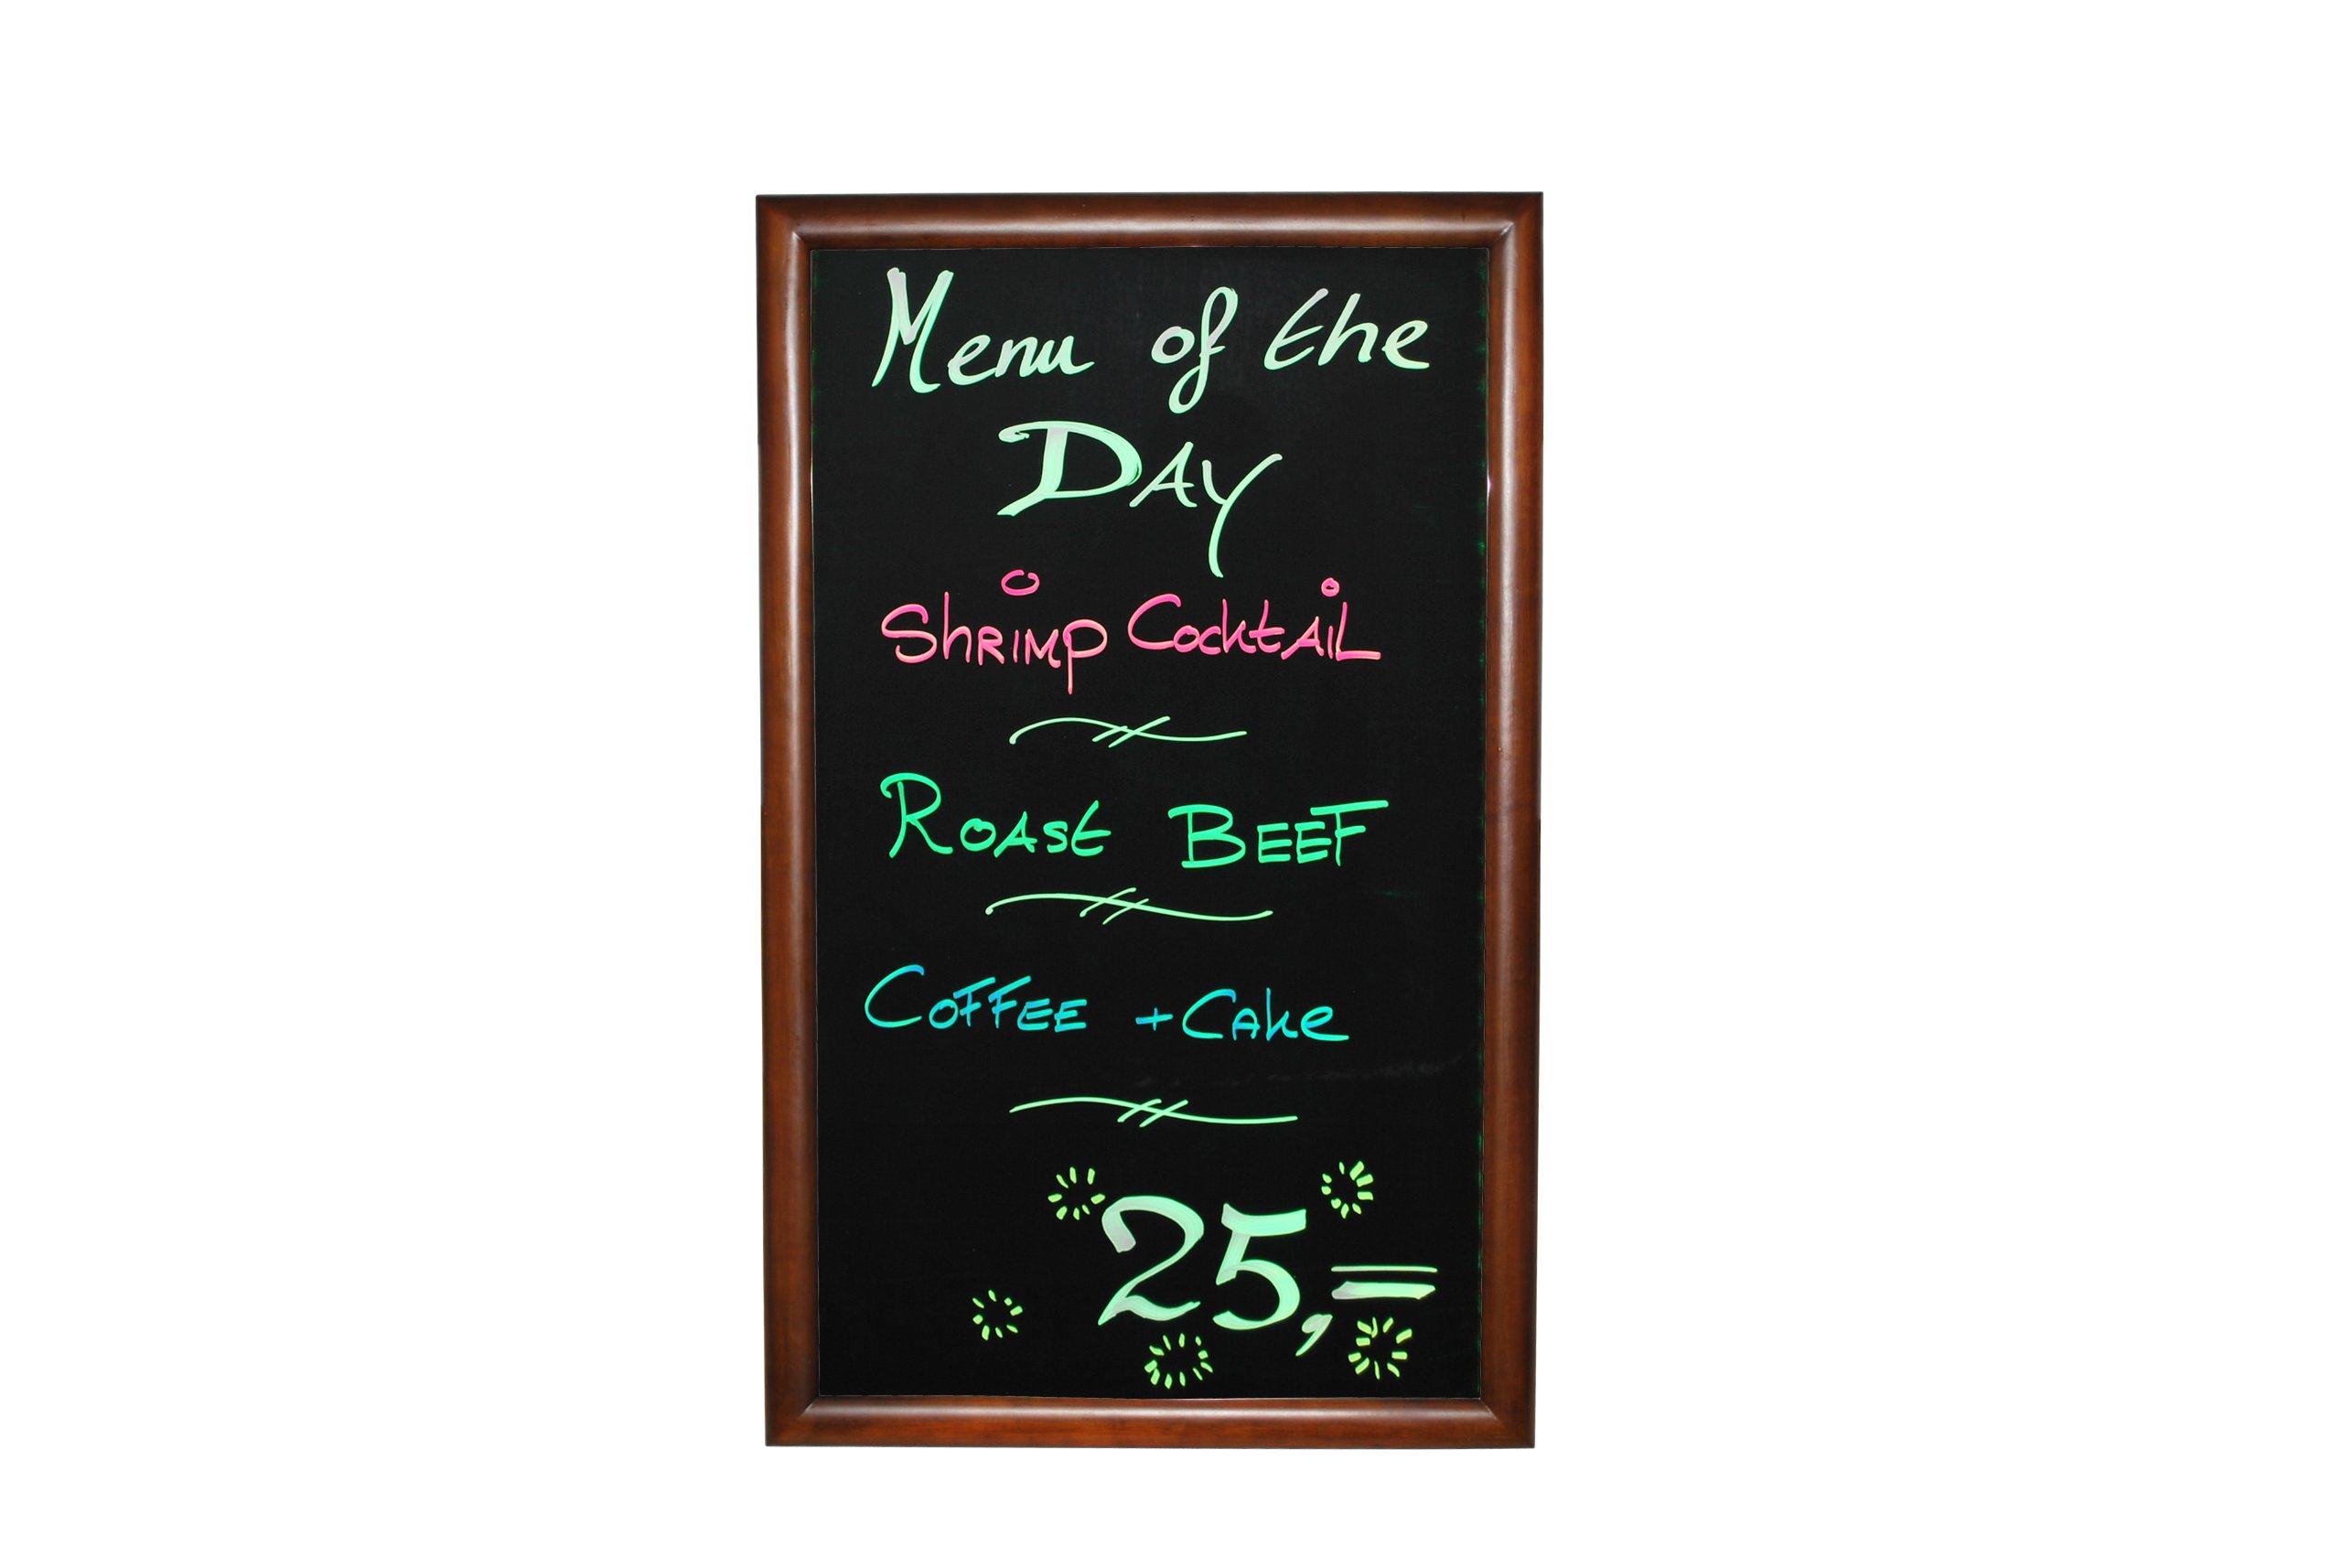 Menu of the
DAY
Shrimp Cocktail
ROASt BEEF
COFFEE + Cake
25,=